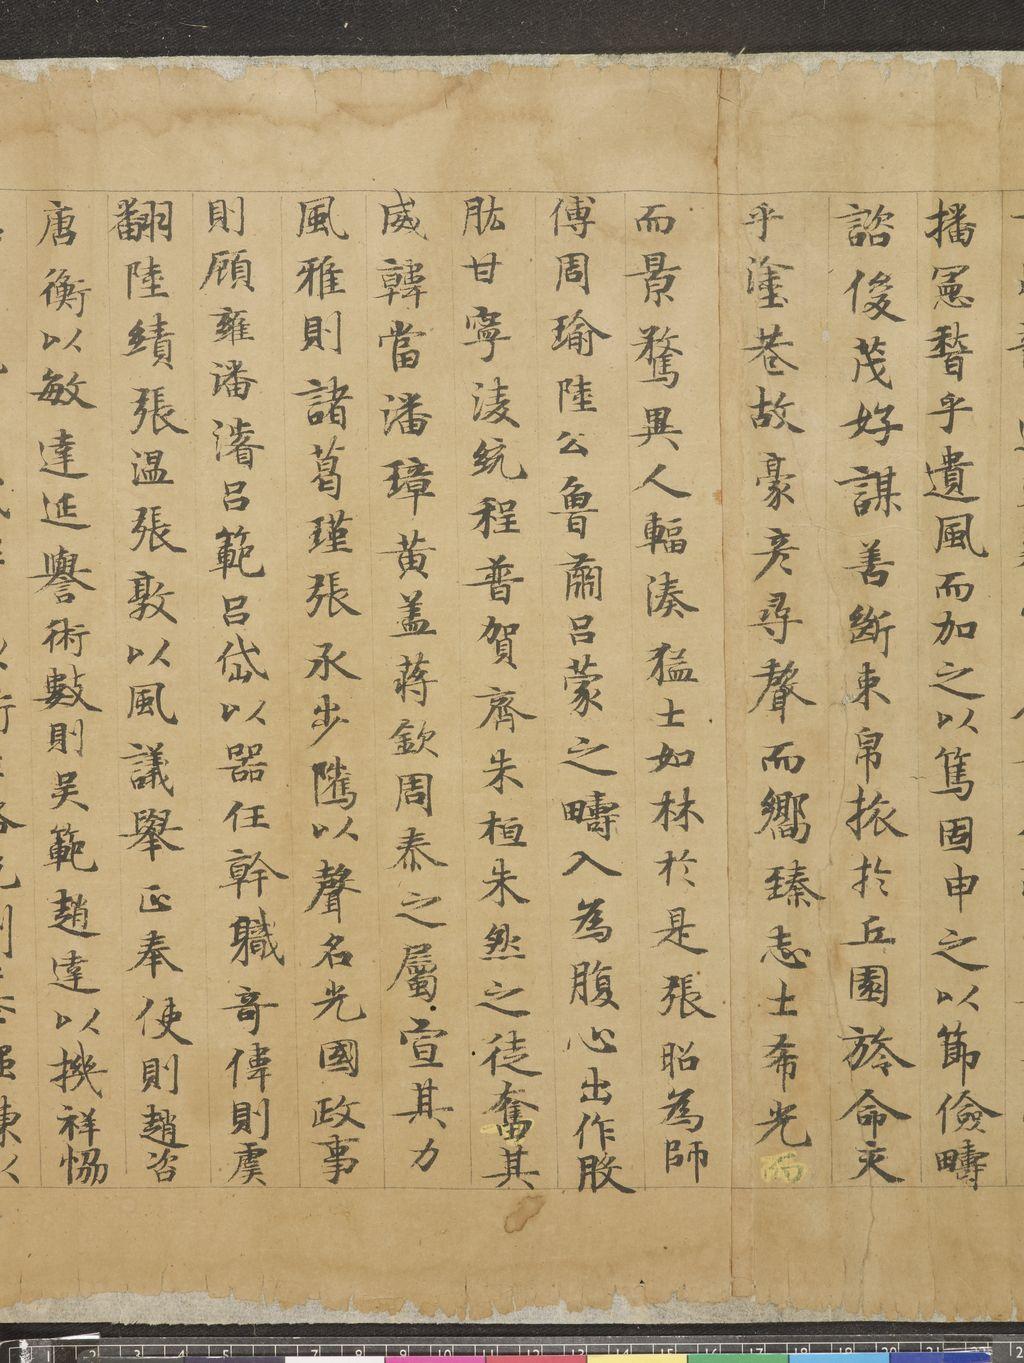 播憲稽乎遺風而加之以篤固申之以節儉疇
諮俊茂好謀善斷束帛旅於丘園旍命交
乎塗巷故豪彦尋聲而嚮臻志士希光而
而景騖異人輻湊猛士如林於是張昭為師
傅周瑜陸公魯肅呂蒙之疇入為腹心出作股
肱甘寧淩統程普賀齊朱桓朱然之徒奮其
威韓當潘璋黄盖蔣欽周泰之屬宣其力
風雅則諸葛瑾張承步隲以聲名光國政事
則顧雍潘濬呂範呂岱以器任幹職奇偉則虞
翻陸績張温張敦以風議舉正奉使則趙咨
唐衡以敏達延譽術數則吳範趙達以機祥協